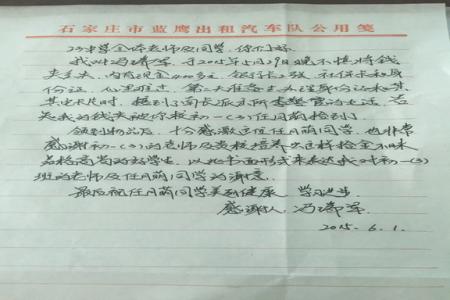 石家庄市蓝鹰出租汽车队公用笺
23中学全体老师及同学，你们好
我叫冯瑞军，于2015年5月29日晚不慎将钱
夹丢失，内有现金400多元，银行卡2张，社保卡和身
份证，心里难过，第二天准备去办理身份证和
其它卡片时，接到了南长派出所李警官的电话，告
知我的钱夹被你校初一(3)任月萌捡到，
领到物品后，十分感激这位任月萌同学，也非常
感谢初一(3)的老师及贵校培养出这样拾金不昧
品格高尚的好学生，以此书面形式来表达我对初一(3)
班的老师及任月萌同学的谢意。
最后祝任月萌同学美丽健康，学习进步
感谢人：冯瑞军
2015.6.1.